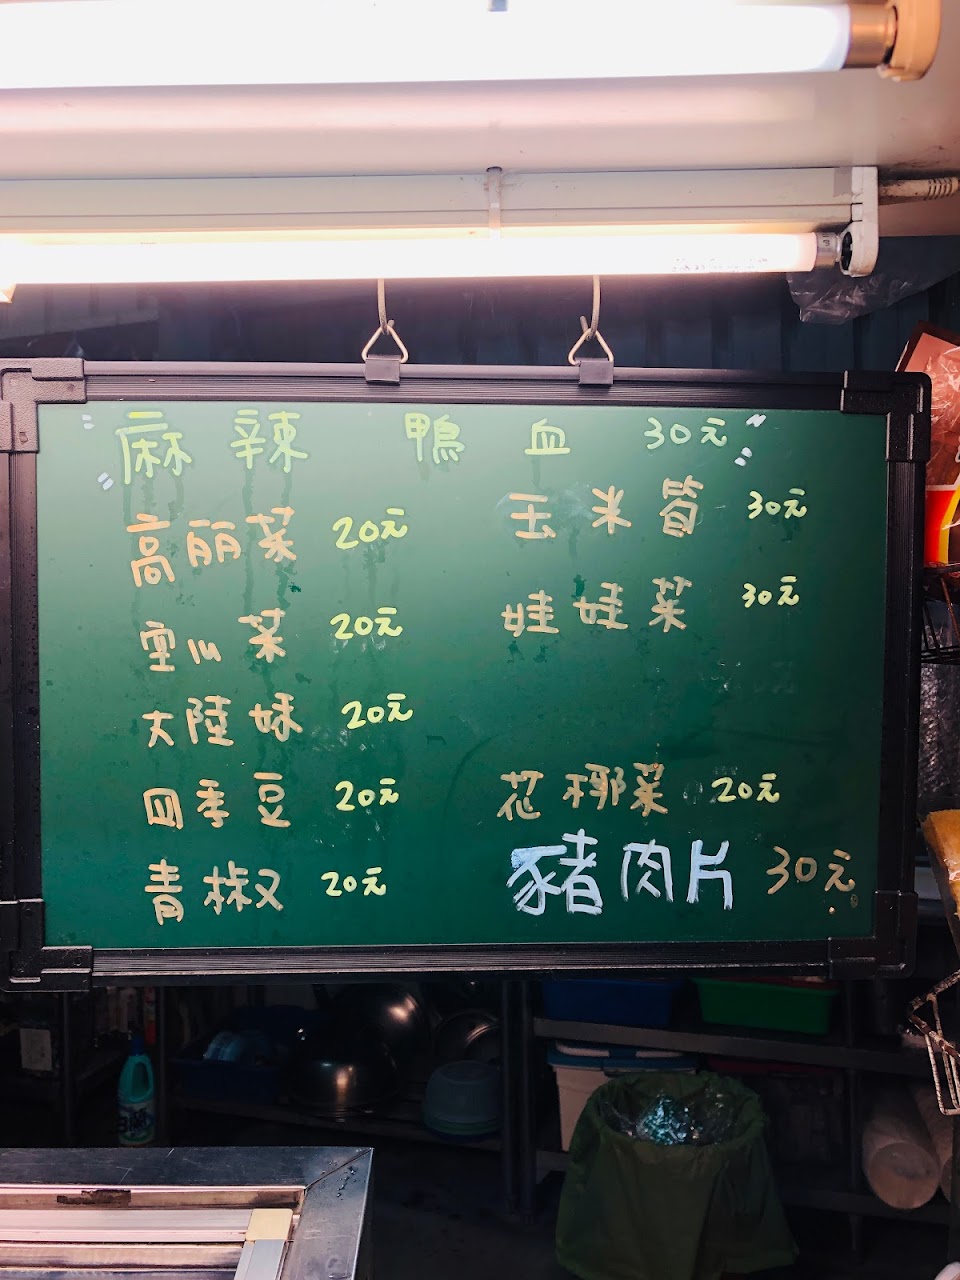 麻辣 鴨血 30元
高丽菜 20元
空心菜 20元
大陸妹 20元
四季豆 20元
青椒 20元
玉米筍 30元
娃娃菜 30元
花椰菜 20元
豬肉片 30元